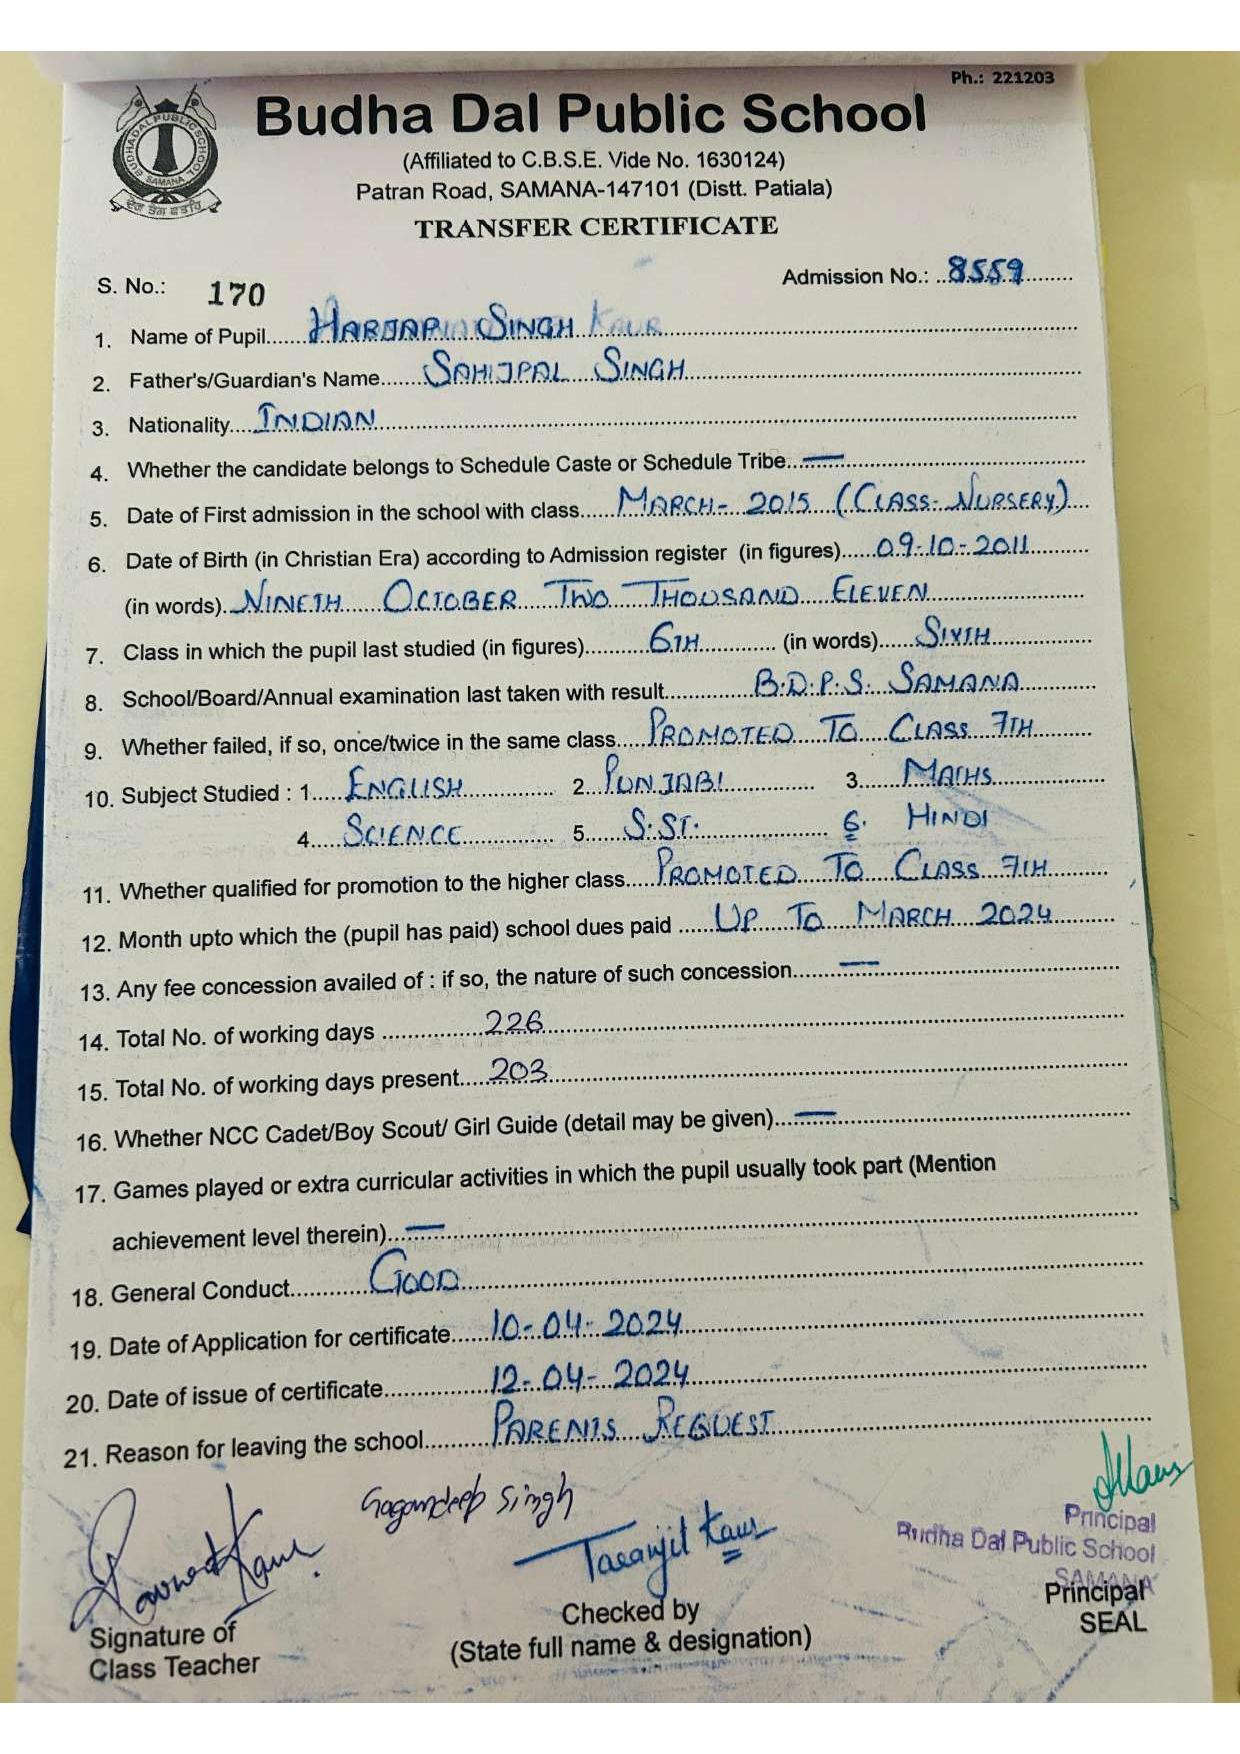 Ph.: 221203
Budha Dal Public School
(Affiliated to C.B.S.E. Vide No. 1630124)
Patran Road, SAMANA-147101 (Distt. Patiala)
TRANSFER CERTIFICATE
BUDHA DAL PUBLIC SCHOOL
SAMANA
S. No.: 170 Admission No.: 8559
1. Name of Pupil HARJAP SINGH KAUR
2. Father's/Guardian's Name SAHIJPAL SINGH
3. Nationality INDIAN
4. Whether the candidate belongs to Schedule Caste or Schedule Tribe —
5. Date of First admission in the school with class MARCH- 2015 (CLASS- NURSERY)
6. Date of Birth (in Christian Era) according to Admission register (in figures) 09-10-2011
(in words) NINETH OCTOBER TWO THOUSAND ELEVEN
7. Class in which the pupil last studied (in figures) 6TH (in words) SIXTH
8. School/Board/Annual examination last taken with result B.D.P.S. SAMANA
9. Whether failed, if so, once/twice in the same class PROMOTED TO CLASS 7TH
10. Subject Studied : 1 ENGLISH 2 PUNJABI 3. MATHS
4 SCIENCE 5 S.ST. 6. HINDI
11. Whether qualified for promotion to the higher class PROMOTED TO CLASS 7TH
12. Month upto which the (pupil has paid) school dues paid UP TO MARCH 2024
13. Any fee concession availed of : if so, the nature of such concession —
14. Total No. of working days 226
15. Total No. of working days present 203
16. Whether NCC Cadet/Boy Scout/ Girl Guide (detail may be given) —
17. Games played or extra curricular activities in which the pupil usually took part (Mention
achievement level therein) —
18. General Conduct GOOD
19. Date of Application for certificate 10-04-2024
20. Date of issue of certificate 12-04-2024
21. Reason for leaving the school PARENTS REQUEST
Gagandeep Singh
Kaur
Taranjit Kaur
Principal
Budha Dal Public School
SAMANA
Signature of
Class Teacher
Checked by
(State full name & designation)
Principal
SEAL